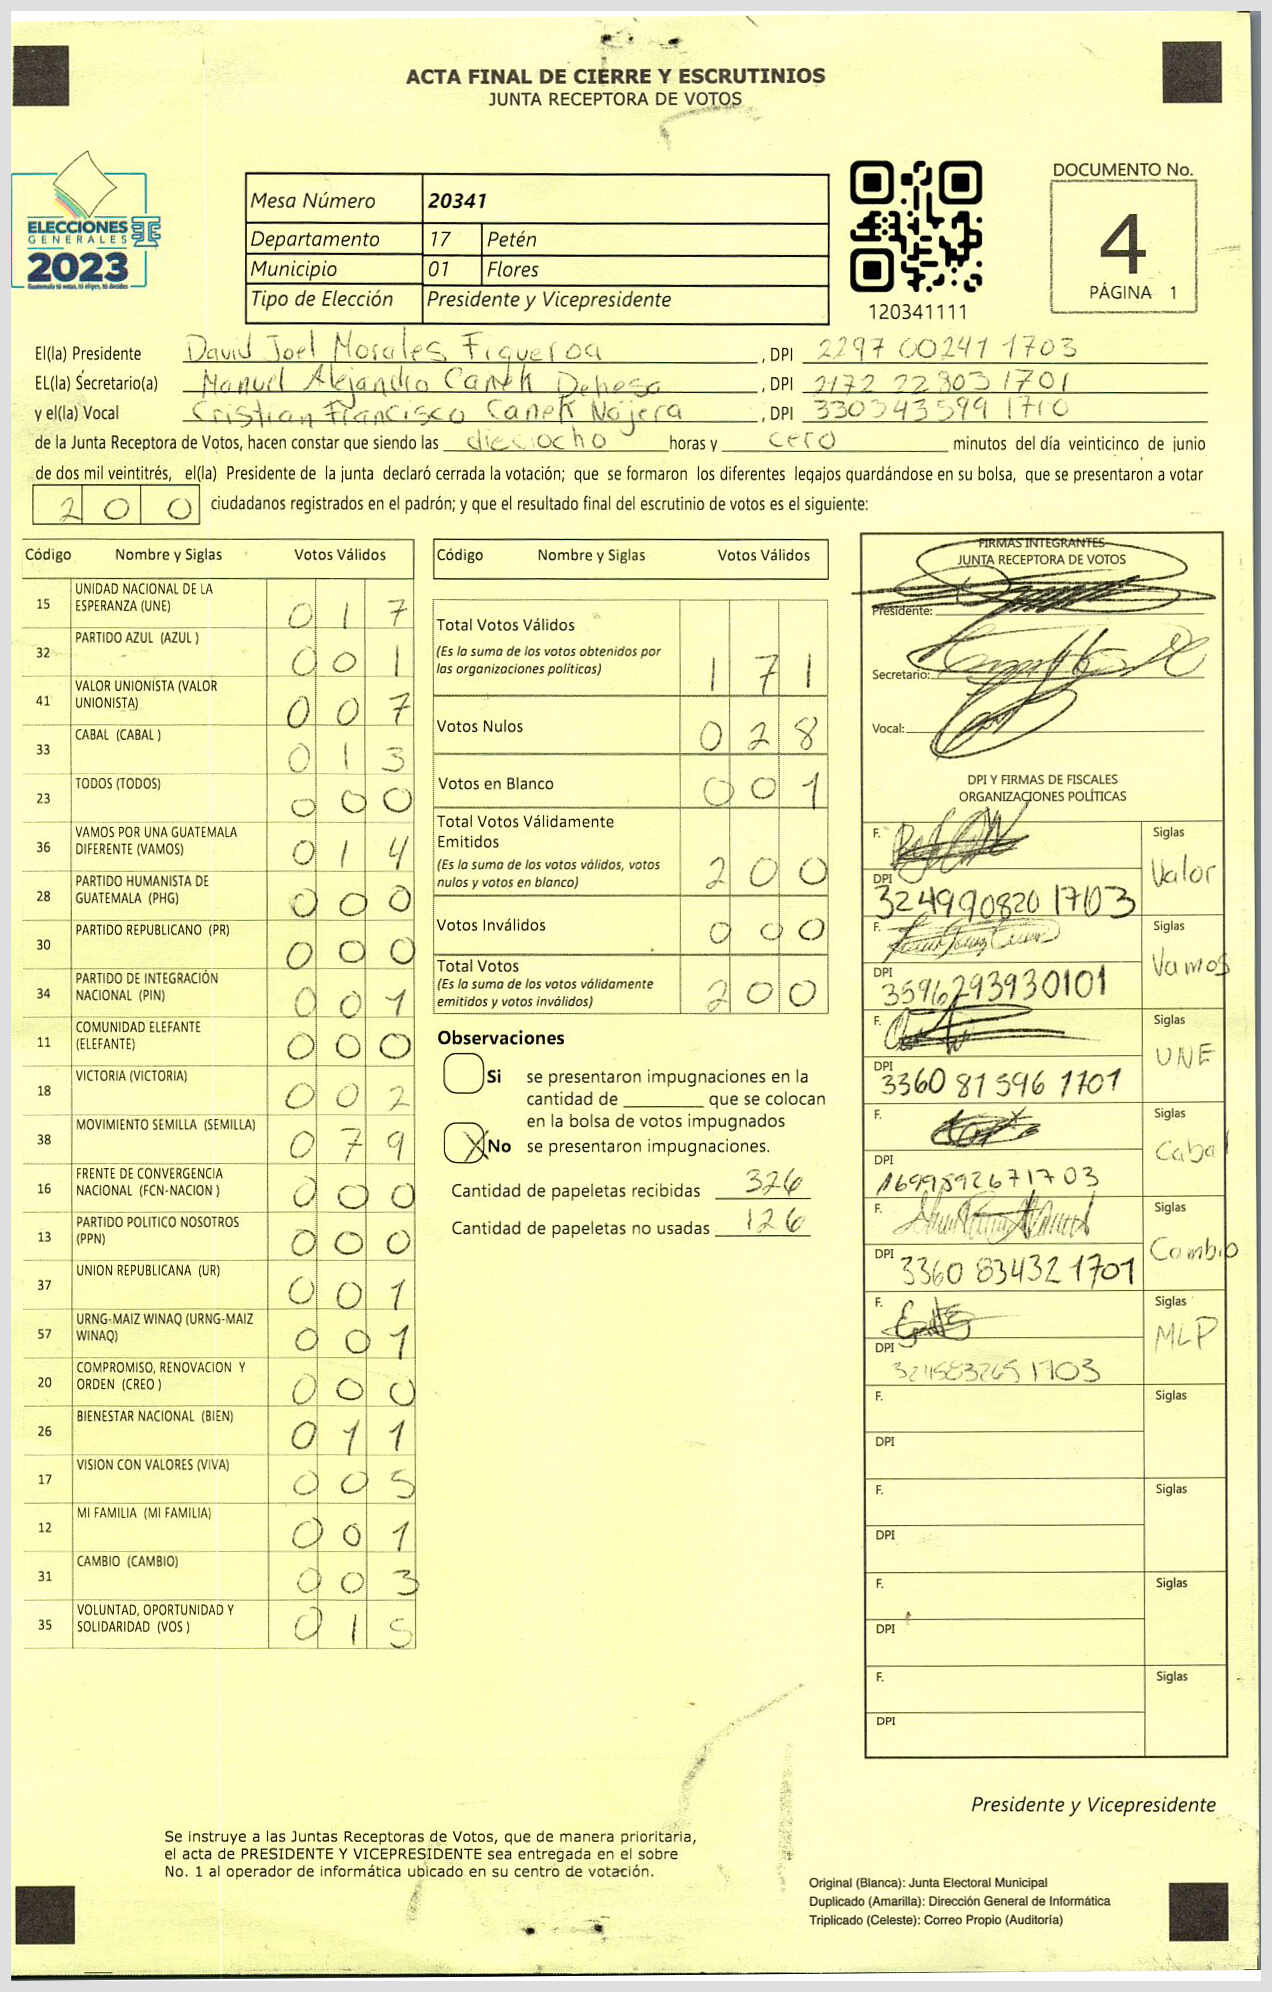 ACTA FINAL DE CIERRE Y ESCRUTINIOS
JUNTA RECEPTORA DE VOTOS
ELECCIONES
GENERALES
2023
Guatemala tú votas, tú eliges, tú decides
Mesa Número 20341
Departamento 17 Petén
Municipio 01 Flores
Tipo de Elección Presidente y Vicepresidente
120341111
DOCUMENTO No.
4
PÁGINA 1
El(la) Presidente David Joel Morales Figueroa, DPI 2297 00241 1703
EL(la) Secretario(a) Manuel Alejandro Canek Dehesa, DPI 2172 22803 1701
y el(la) Vocal Cristian Francisco Canek Nájera, DPI 330343599 1710
de la Junta Receptora de Votos, hacen constar que siendo las dieciocho horas y cero minutos del día veinticinco de junio
de dos mil veintitrés, el(la) Presidente de la junta declaró cerrada la votación; que se formaron los diferentes legajos guardándose en su bolsa, que se presentaron a votar
200 ciudadanos registrados en el padrón; y que el resultado final del escrutinio de votos es el siguiente:
Código Nombre y Siglas Votos Válidos
15 UNIDAD NACIONAL DE LA ESPERANZA (UNE) 017
32 PARTIDO AZUL (AZUL ) 001
41 VALOR UNIONISTA (VALOR UNIONISTA) 007
33 CABAL (CABAL ) 013
23 TODOS (TODOS) 000
36 VAMOS POR UNA GUATEMALA DIFERENTE (VAMOS) 014
28 PARTIDO HUMANISTA DE GUATEMALA (PHG) 000
30 PARTIDO REPUBLICANO (PR) 000
34 PARTIDO DE INTEGRACIÓN NACIONAL (PIN) 001
11 COMUNIDAD ELEFANTE (ELEFANTE) 000
18 VICTORIA (VICTORIA) 002
38 MOVIMIENTO SEMILLA (SEMILLA) 079
16 FRENTE DE CONVERGENCIA NACIONAL (FCN-NACION ) 000
13 PARTIDO POLITICO NOSOTROS (PPN) 000
37 UNION REPUBLICANA (UR) 001
57 URNG-MAIZ WINAQ (URNG-MAIZ WINAQ) 001
20 COMPROMISO, RENOVACION Y ORDEN (CREO ) 000
26 BIENESTAR NACIONAL (BIEN) 011
17 VISION CON VALORES (VIVA) 005
12 MI FAMILIA (MI FAMILIA) 001
31 CAMBIO (CAMBIO) 003
35 VOLUNTAD, OPORTUNIDAD Y SOLIDARIDAD (VOS ) 015
Código Nombre y Siglas Votos Válidos
Total Votos Válidos
(Es la suma de los votos obtenidos por
las organizaciones políticas) 171
Votos Nulos 028
Votos en Blanco 001
Total Votos Válidamente
Emitidos
(Es la suma de los votos válidos, votos
nulos y votos en blanco) 200
Votos Inválidos 000
Total Votos
(Es la suma de los votos válidamente
emitidos y votos inválidos) 200
Observaciones
Si se presentaron impugnaciones en la
cantidad de ________ que se colocan
en la bolsa de votos impugnados
X No se presentaron impugnaciones.
Cantidad de papeletas recibidas 326
Cantidad de papeletas no usadas 126
FIRMAS INTEGRANTES
JUNTA RECEPTORA DE VOTOS
Presidente:
Secretario:
Vocal:
DPI Y FIRMAS DE FISCALES
ORGANIZACIONES POLÍTICAS
F. Siglas Valor
DPI 324990820 1703
F. Siglas Vamos
DPI 3596293930101
F. Siglas UNE
DPI 3360 81596 1701
F. Siglas Cabal
DPI 1699592671703
F. Siglas Cambio
DPI 3360 83432 1701
F. Siglas MLP
DPI 324583265 1703
F. Siglas
DPI
F. Siglas
DPI
F. Siglas
DPI
F. Siglas
DPI
Presidente y Vicepresidente
Se instruye a las Juntas Receptoras de Votos, que de manera prioritaria,
el acta de PRESIDENTE Y VICEPRESIDENTE sea entregada en el sobre
No. 1 al operador de informática ubicado en su centro de votación.
Original (Blanca): Junta Electoral Municipal
Duplicado (Amarilla): Dirección General de Informática
Triplicado (Celeste): Correo Propio (Auditoría)